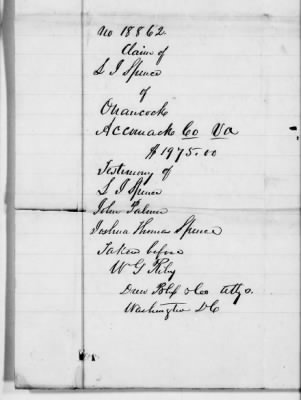 No 18862.
Claim of
S I Spence
of
Onancock
Accomack Co Va
$1975.00
Testimony of
S I Spence
John Palmer
Joshua Thomas Spence
Taken before
W G Riley
Drew & Co Attys.
Washington DC